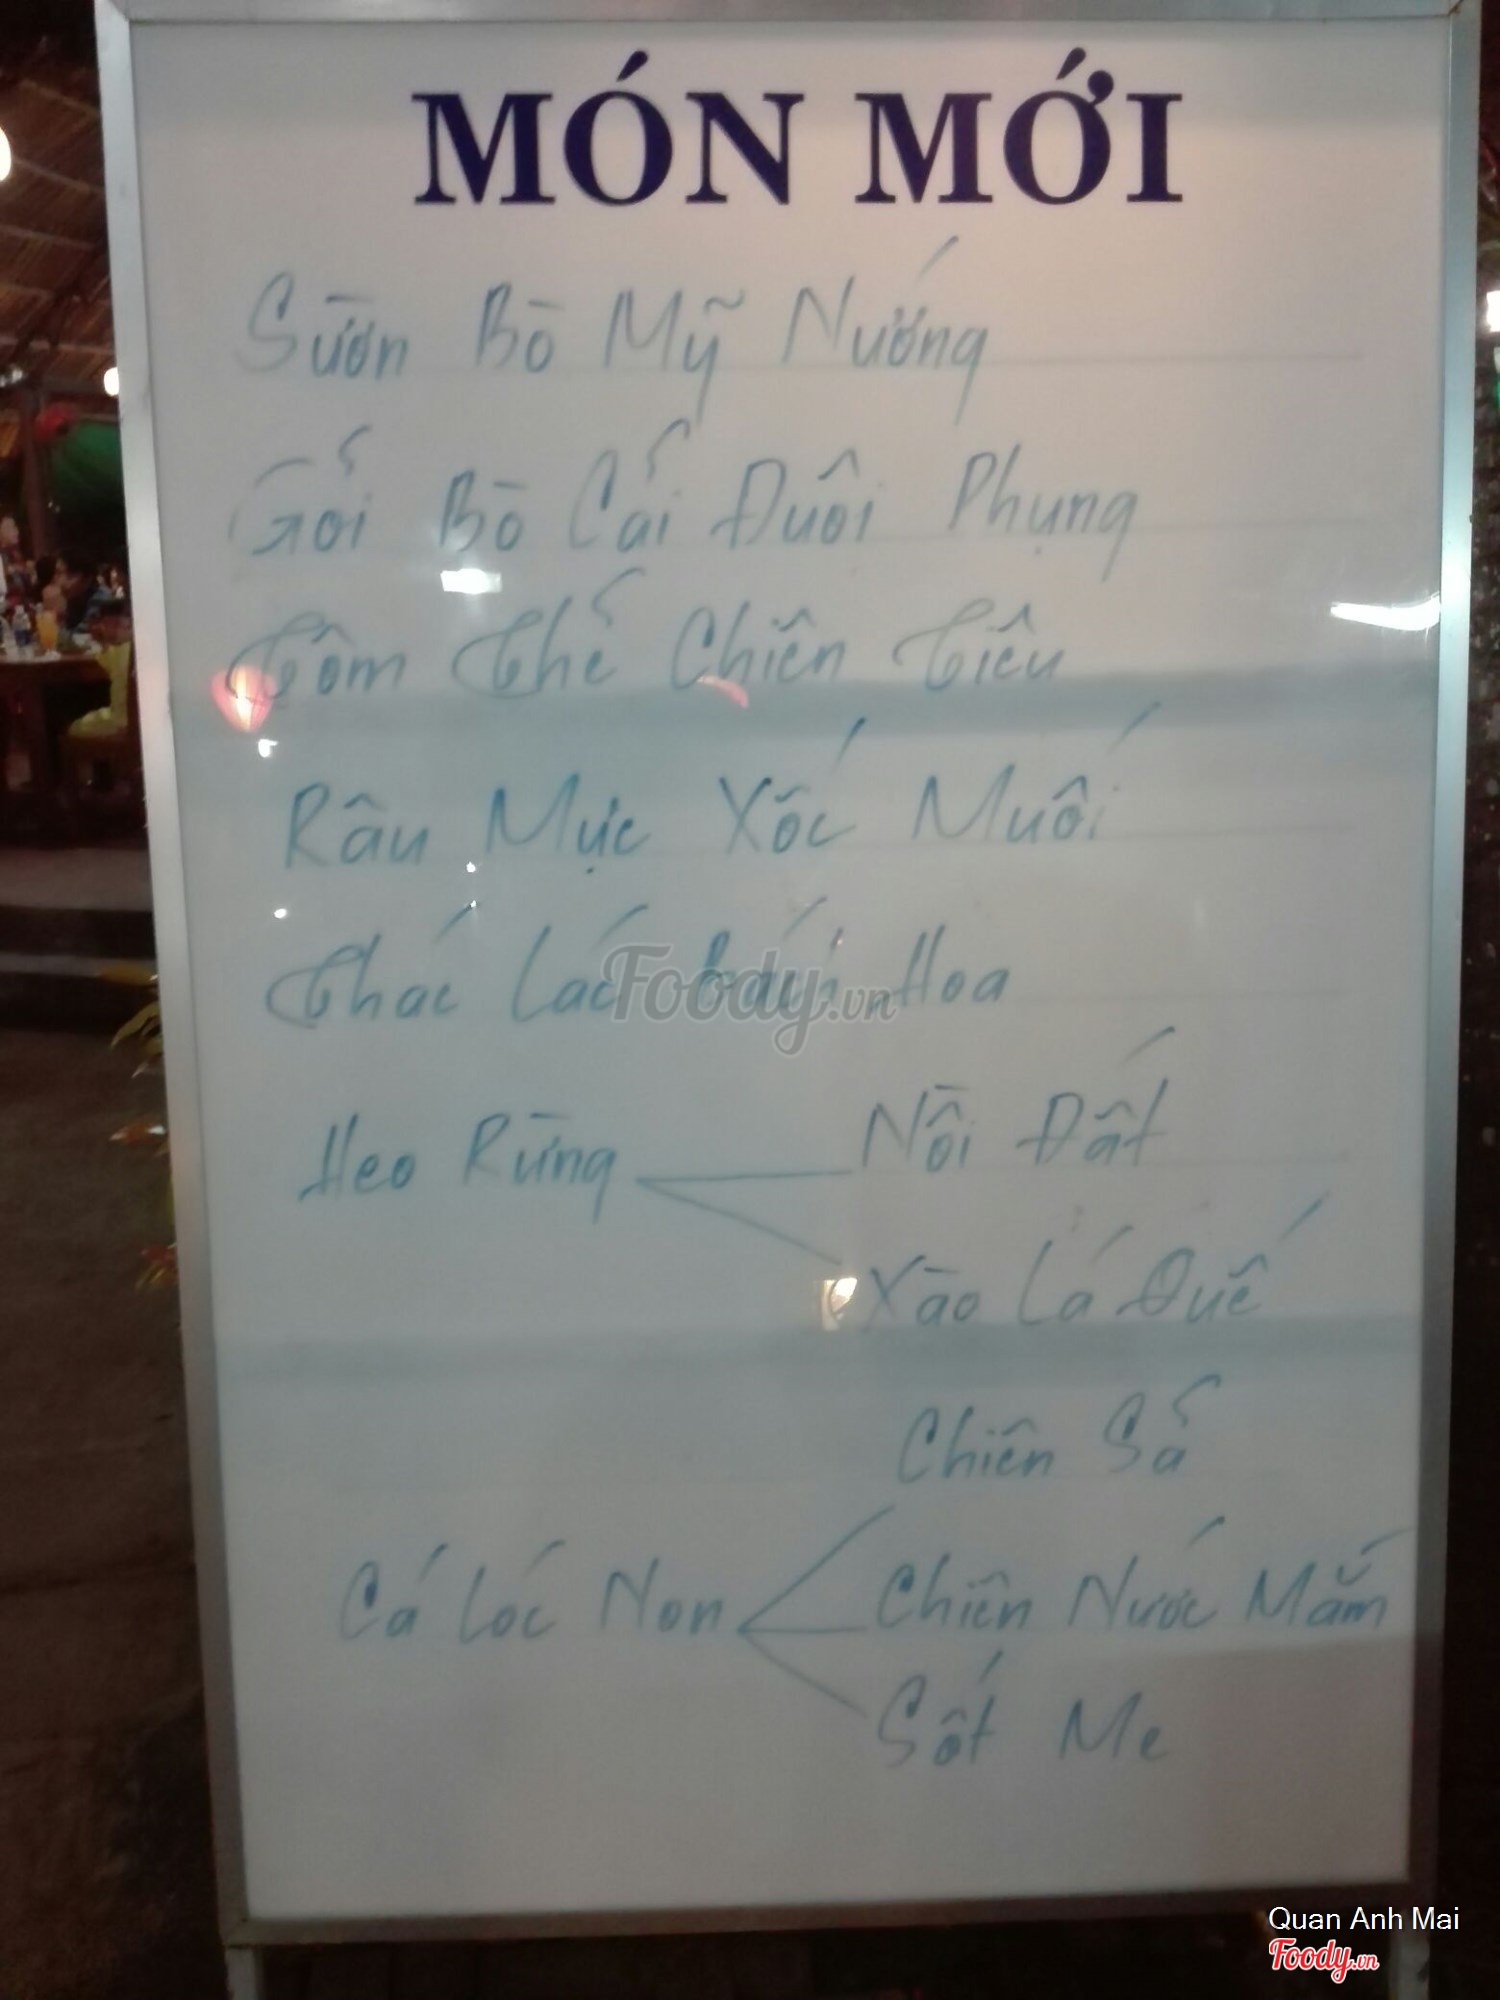 MÓN MỚI
Sườn Bò Mỹ Nướng
Gỏi Bò Cải Đuôi Phụng
Tôm Thẻ Chiên Tiêu
Râu Mực Xốc Muối
Thác Lác Hoa
Heo Rừng Nồi Đất
Xào Lá Quế
Chiên Sả
Cá Lóc Non Chiên Nước Mắm
Sốt Me
Foody.vn
Quan Anh Mai
Foody.vn